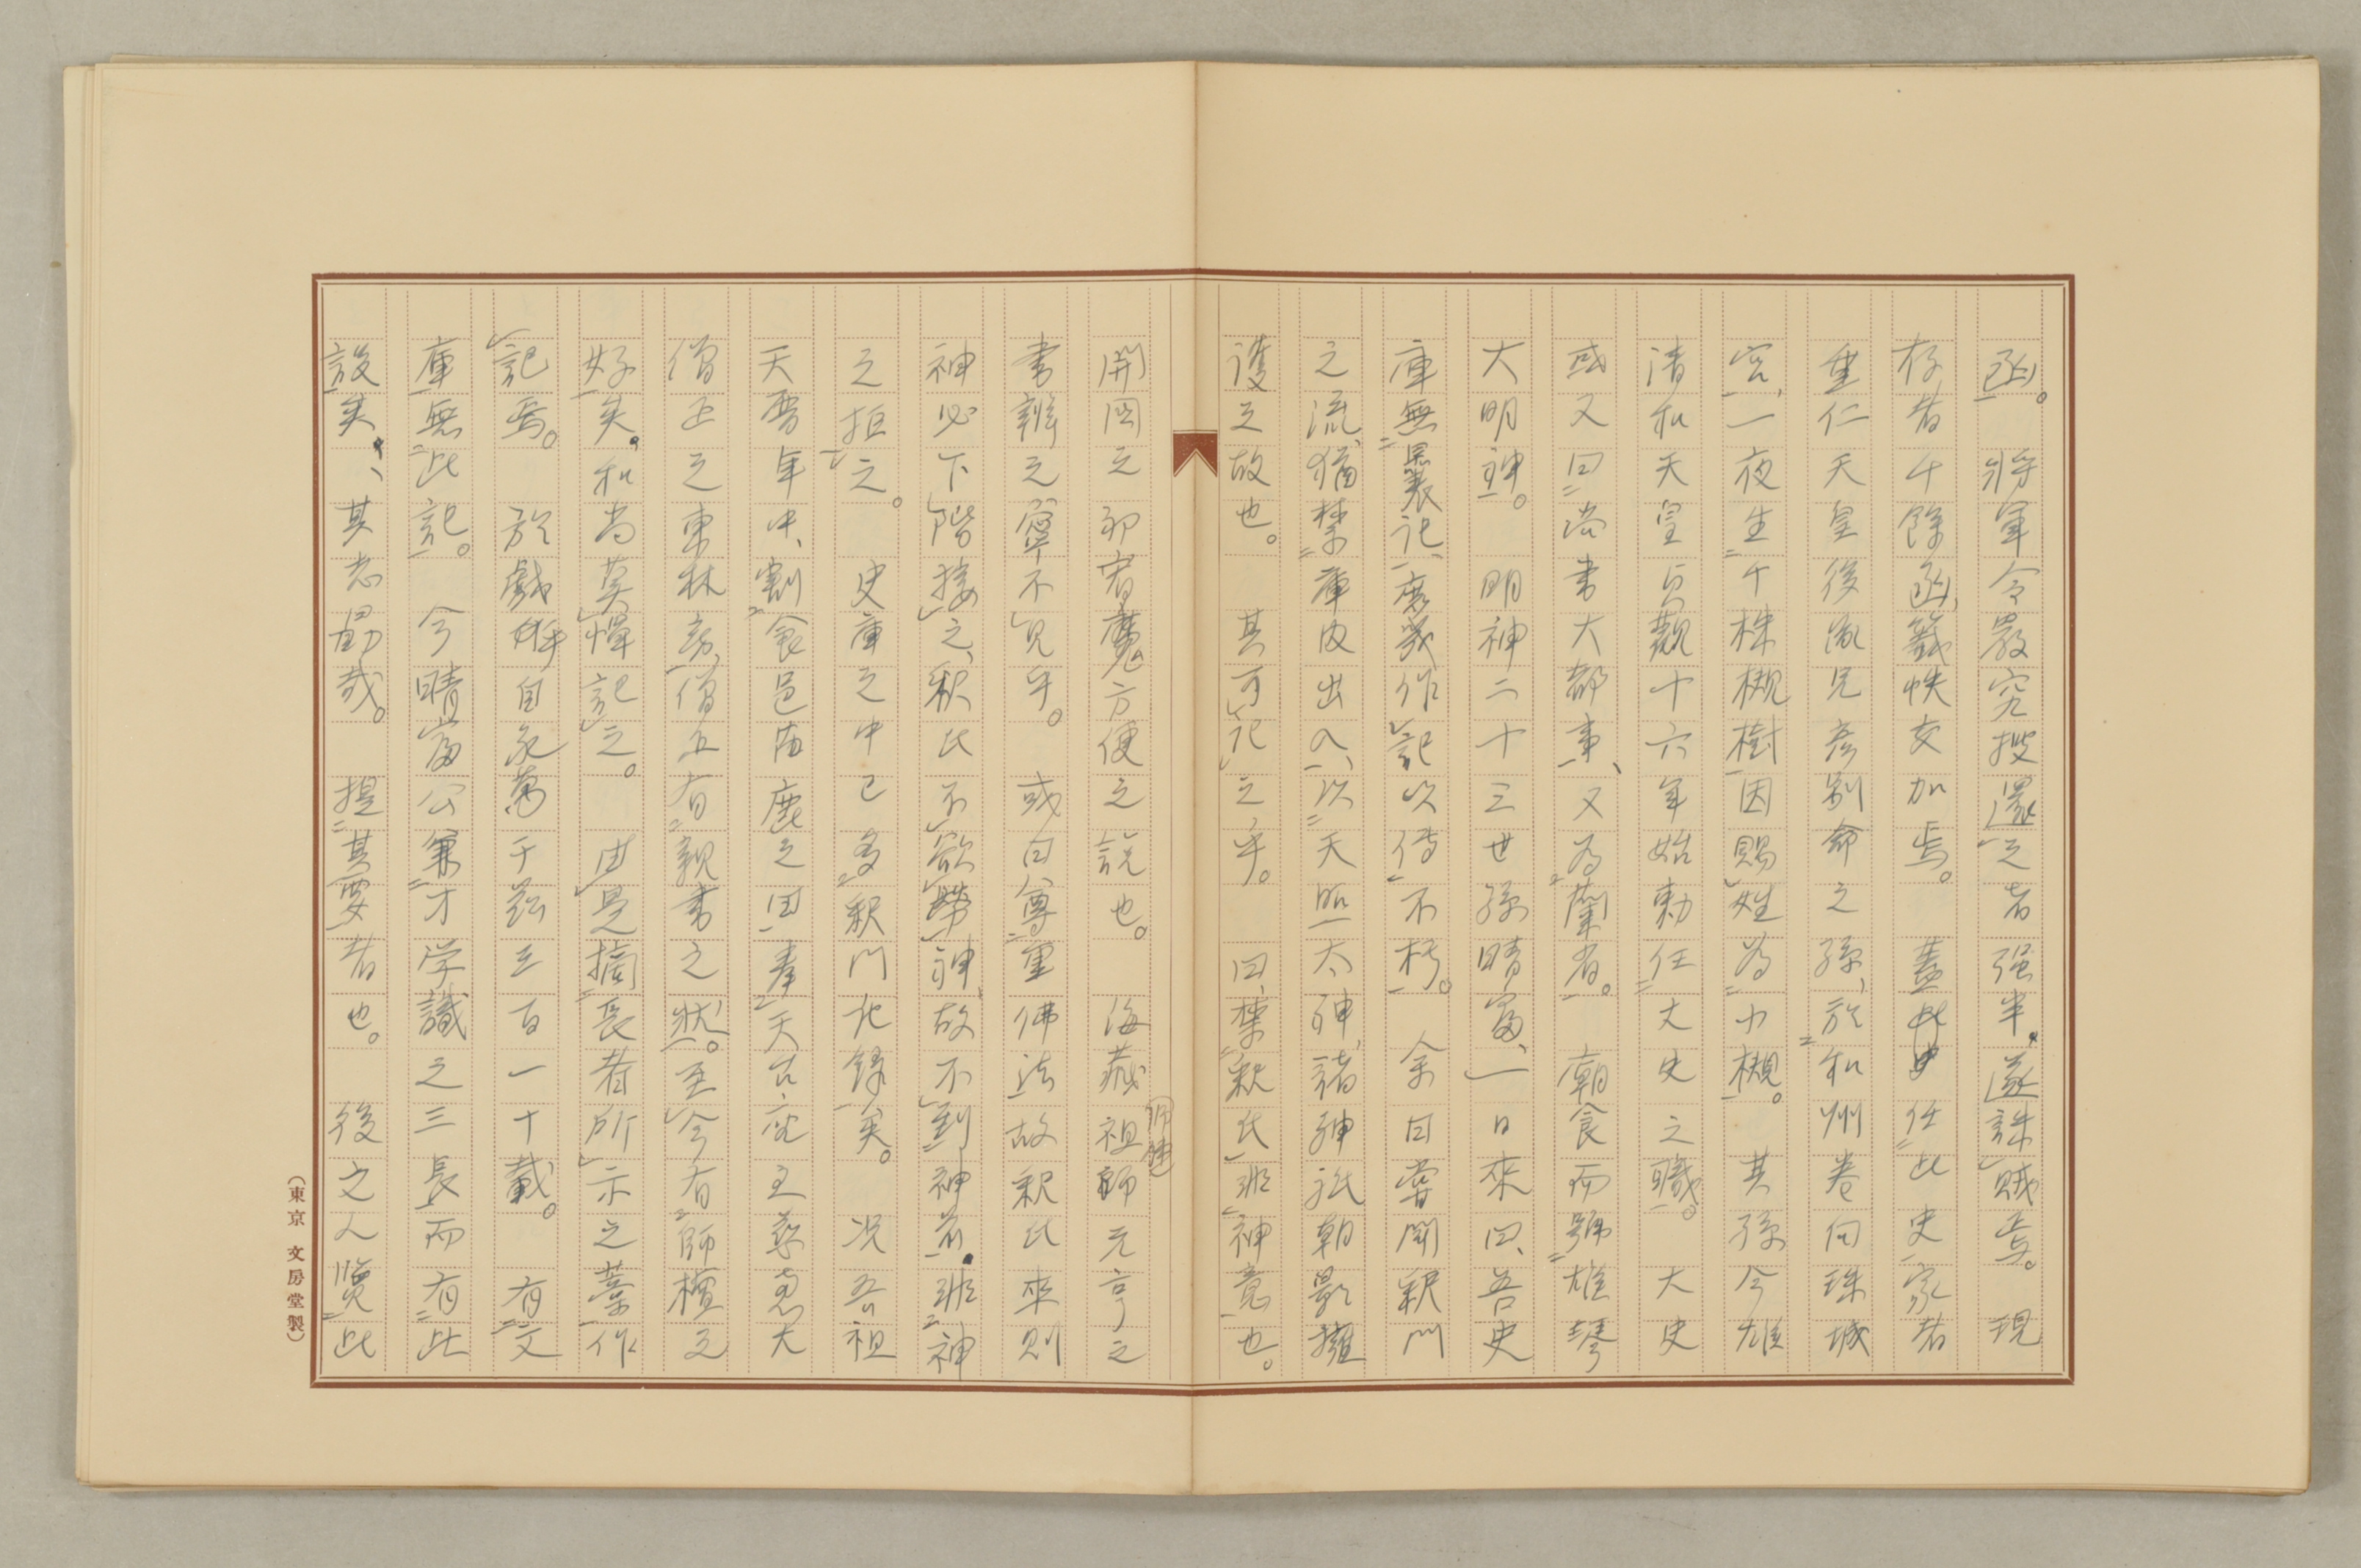 函。将軍令嚴究捜還之者强半。遂誅賊焉。現
存者千餘函、籤帙安加焉。蓋此史任此史家者
垂仁天皇後胤兄彦別命之孫、於和州巻向珠城
宮、一夜生千株槻樹因賜姓為小槻。其孫今雄
清和天皇貞觀十六年始勅任大史之職。大史
或又曰尚書大都事、又為蘭省。朝食而号雄琴
大明神。明神二十三世孫晴富、一日來曰、吾史
庫無曩記、庶幾作記以傳不朽。余曰嘗聞釈門
之流、猶禁庫内出入、以天照太神、諸神祇朝影擁
護之故也。其可記之乎。曰、禁釈氏非神意也。
開国之初有魔方便之説也。海蔵祖師元亨之
書辨之寧不見乎。或曰尊重佛法故釈氏来則
神必下階接之、釈氏不欲勞神、故不到神前。非神
之拒之。史庫之中已多釈門記録矣。况吾祖
天暦年中、割食邑苗鹿之田奉天台座主慈恵大
僧正之東林房、僧正有親書之状。至今有師檀之
好矣。和尚莫憚記之。由是摘長者所示之藁作
記焉。於戯姓自永萬于茲三百一十載。有文
庫無此記。今晴富公兼才学識之三長而有此
設矣。其志勤哉。提其要者也。後之人覧此
（東京 文房堂製）